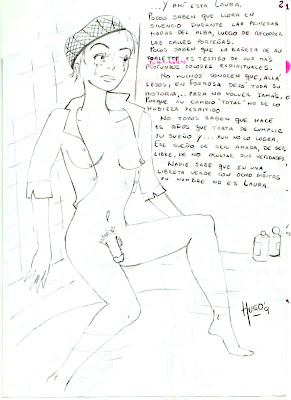 Y AHÍ ESTÁ LAURA.
POCOS SABEN QUE LLORA EN
SILENCIO DURANTE LAS PRIMERAS
HORAS DEL ALBA, LUEGO DE RECORRER
LAS CALLES PORTEÑAS.
POCOS SABEN QUE LA BAÑERA DE SU
TOILETTE ES TESTIGO DE SUS MÁS
PROFUNDOS DOLORES ESPIRITUALES.
NO MUCHOS CONOCEN QUE, ALLÁ
LEJOS, EN FORMOSA DEJÓ TODA SU
HISTORIA,.. PARA NO VOLVER JAMÁS.
PORQUE SU CAMBIO "TOTAL" NO SE LO
HUBIERA PERMITIDO
NO TODOS SABEN QUE HACE
AÑOS QUE TRATA DE CUMPLIR
SU SUEÑO Y... AUN NO LO LOGRA.
ESE SUEÑO DE SER AMADA, DE SER
LIBRE, DE NO OCULTAR SUS VERDADES.
NADIE SABE QUE EN UNA
LIBRETA VERDE CON OCHO DÍGITOS
SU NOMBRE NO ES LAURA.
HUGO'9